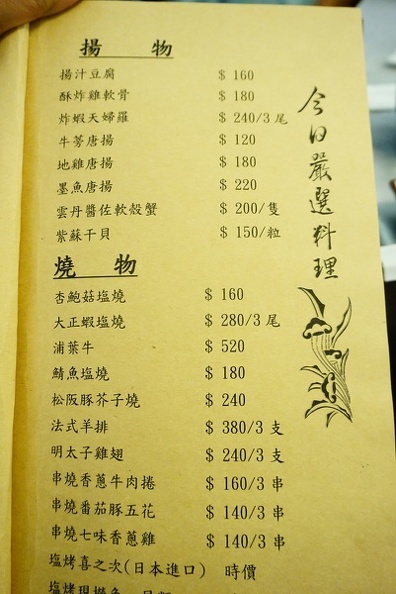 揚 物
揚汁豆腐 $ 160
酥炸雞軟骨 $ 180
炸蝦天婦羅 $ 240/3 尾
牛蒡唐揚 $ 120
地雞唐揚 $ 180
墨魚唐揚 $ 220
雲丹醬佐軟殼蟹 $ 200/隻
紫蘇干貝 $ 150/粒
燒 物
杏鮑菇塩燒 $ 160
大正蝦塩燒 $ 280/3 尾
浦葉牛 $ 520
鯖魚塩燒 $ 180
松阪豚芥子燒 $ 240
法式羊排 $ 380/3 支
明太子雞翅 $ 240/3 支
串燒香蔥牛肉捲 $ 160/3 串
串燒番茄豚五花 $ 140/3 串
串燒七味香蔥雞 $ 140/3 串
塩烤喜之次(日本進口) 時價
塩烤現撈魚
今日嚴選料理